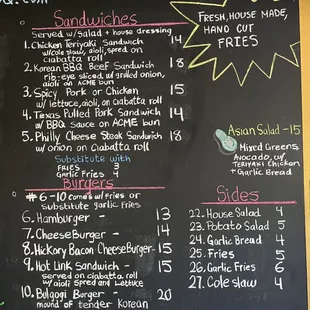 .com
Sandwiches
Served w/salad + house dressing
1. Chicken Teriyaki Sandwich 14
w/cole slaw, aioli, spread on
ciabatta roll
2. Korean BBQ Beef Sandwich 18
rib-eye sliced w/grilled onion,
aioli on ACME bun
3. Spicy Pork or Chicken 15
w/lettuce, aioli, on ciabatta roll
4. Texas Pulled Pork Sandwich 14
w/BBQ sauce on ACME bun
5. Philly Cheese Steak Sandwich 18
w/onion on Ciabatta roll
Substitute with
Fries 3
Garlic Fries 4
Burgers
#6-10 comes w/fries or
substitute garlic fries
6. Hamburger - 13
7. Cheese Burger - 14
8. Hickory Bacon Cheese Burger - 15
9. Hot Link Sandwich - 15
served on ciabatta roll
w/aioli spread and lettuce
10. Bulgogi Burger - 20
mound of tender Korean
Fresh, House Made,
Hand Cut
Fries
Asian Salad - 15
Mixed Greens
Avocado, w/
Teriyaki Chicken
+ Garlic Bread
Sides
22. House Salad 4
23. Potato Salad 5
24. Garlic Bread 4
25. Fries 5
26. Garlic Fries 6
27. Cole slaw 4